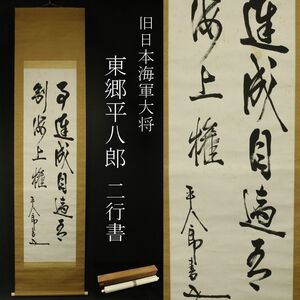 旧日本海軍大将
東郷平八郎 二行書
達成目
制海上權
平八郎書
達成目
海上權
平八郎書